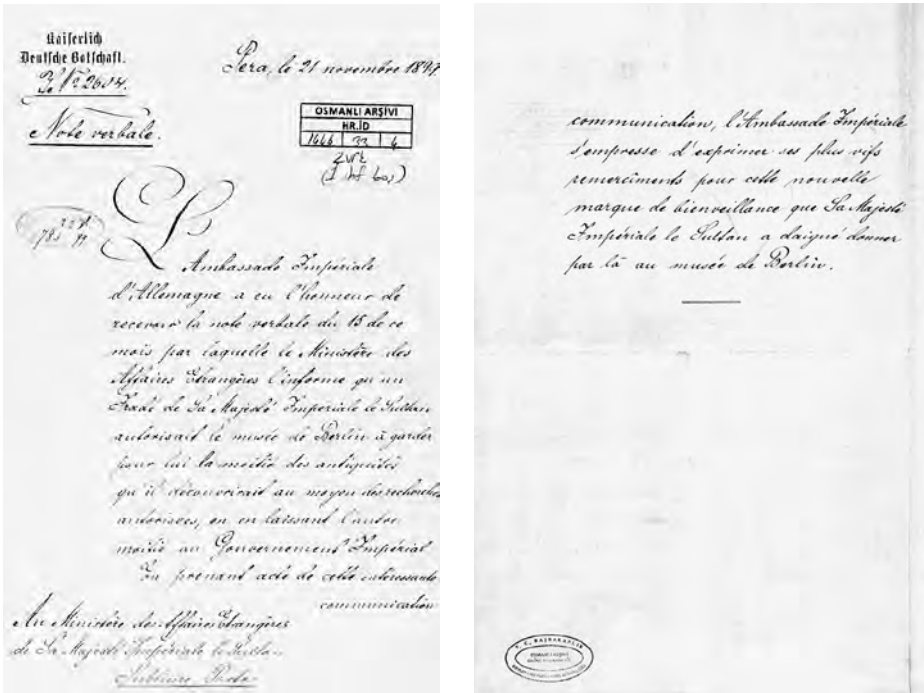 Kaiserlich
Deutsche Botschaft.
Note verbale.
Péra, le 21 novembre 1899.
OSMANLI ARŞİVİ
HR.İD
1666 33 4
L'Ambassade Impériale
d'Allemagne a eu l'honneur de
recevoir la note verbale du 15 de ce
mois par laquelle le Ministère des
Affaires Etrangères l'informe qu'un
Iradé de Sa Majesté Impériale le Sultan
autorisait le musée de Berlin à garder
pour lui la moitié des antiquités
qu'il découvrirait au moyen des recherches
autorisées, en en laissant l'autre
moitié au Gouvernement Impérial
En prenant acte de cette intéressante
communication
Au Ministère des Affaires Etrangères
de Sa Majesté Impériale le Sultan
Sublime Porte
communication, l'Ambassade Impériale
s'empresse d'exprimer ses plus vifs
remercîments pour cette nouvelle
marque de bienveillance que Sa Majesté
Impériale le Sultan a daigné donner
par là au musée de Berlin.